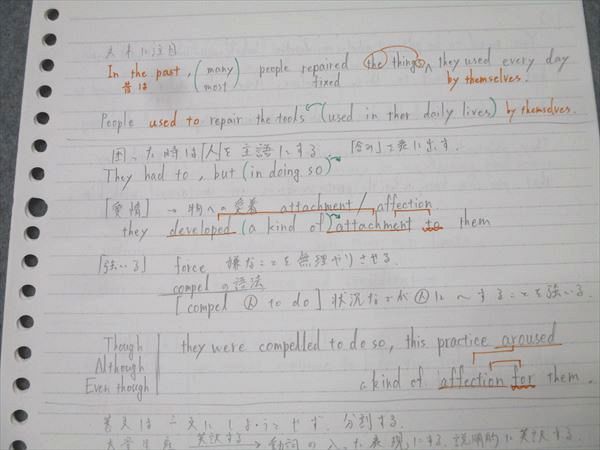 文末に注目
In the past, (many people repaired the things they used every day
昔は most fixed by themselves.
People used to repair the tools (used in ther daily lives) by themselves.
困った時は「人」を主語にする.
They had to, but (in doing so)
「愛情」→ 物への愛着 attachment / affection
they developed (a kind of) attachment to them
「強いる」 force 嫌なことを無理やりさせる.
compel の語法
[compel 人 to do] 状況などが人に〜することを強いる.
Though they were compelled to do so, this practice aroused
Although
Even though a kind of affection for them.
英文は 分割する.
英訳する → 動詞の入った表現にする. 説明的に英訳する.